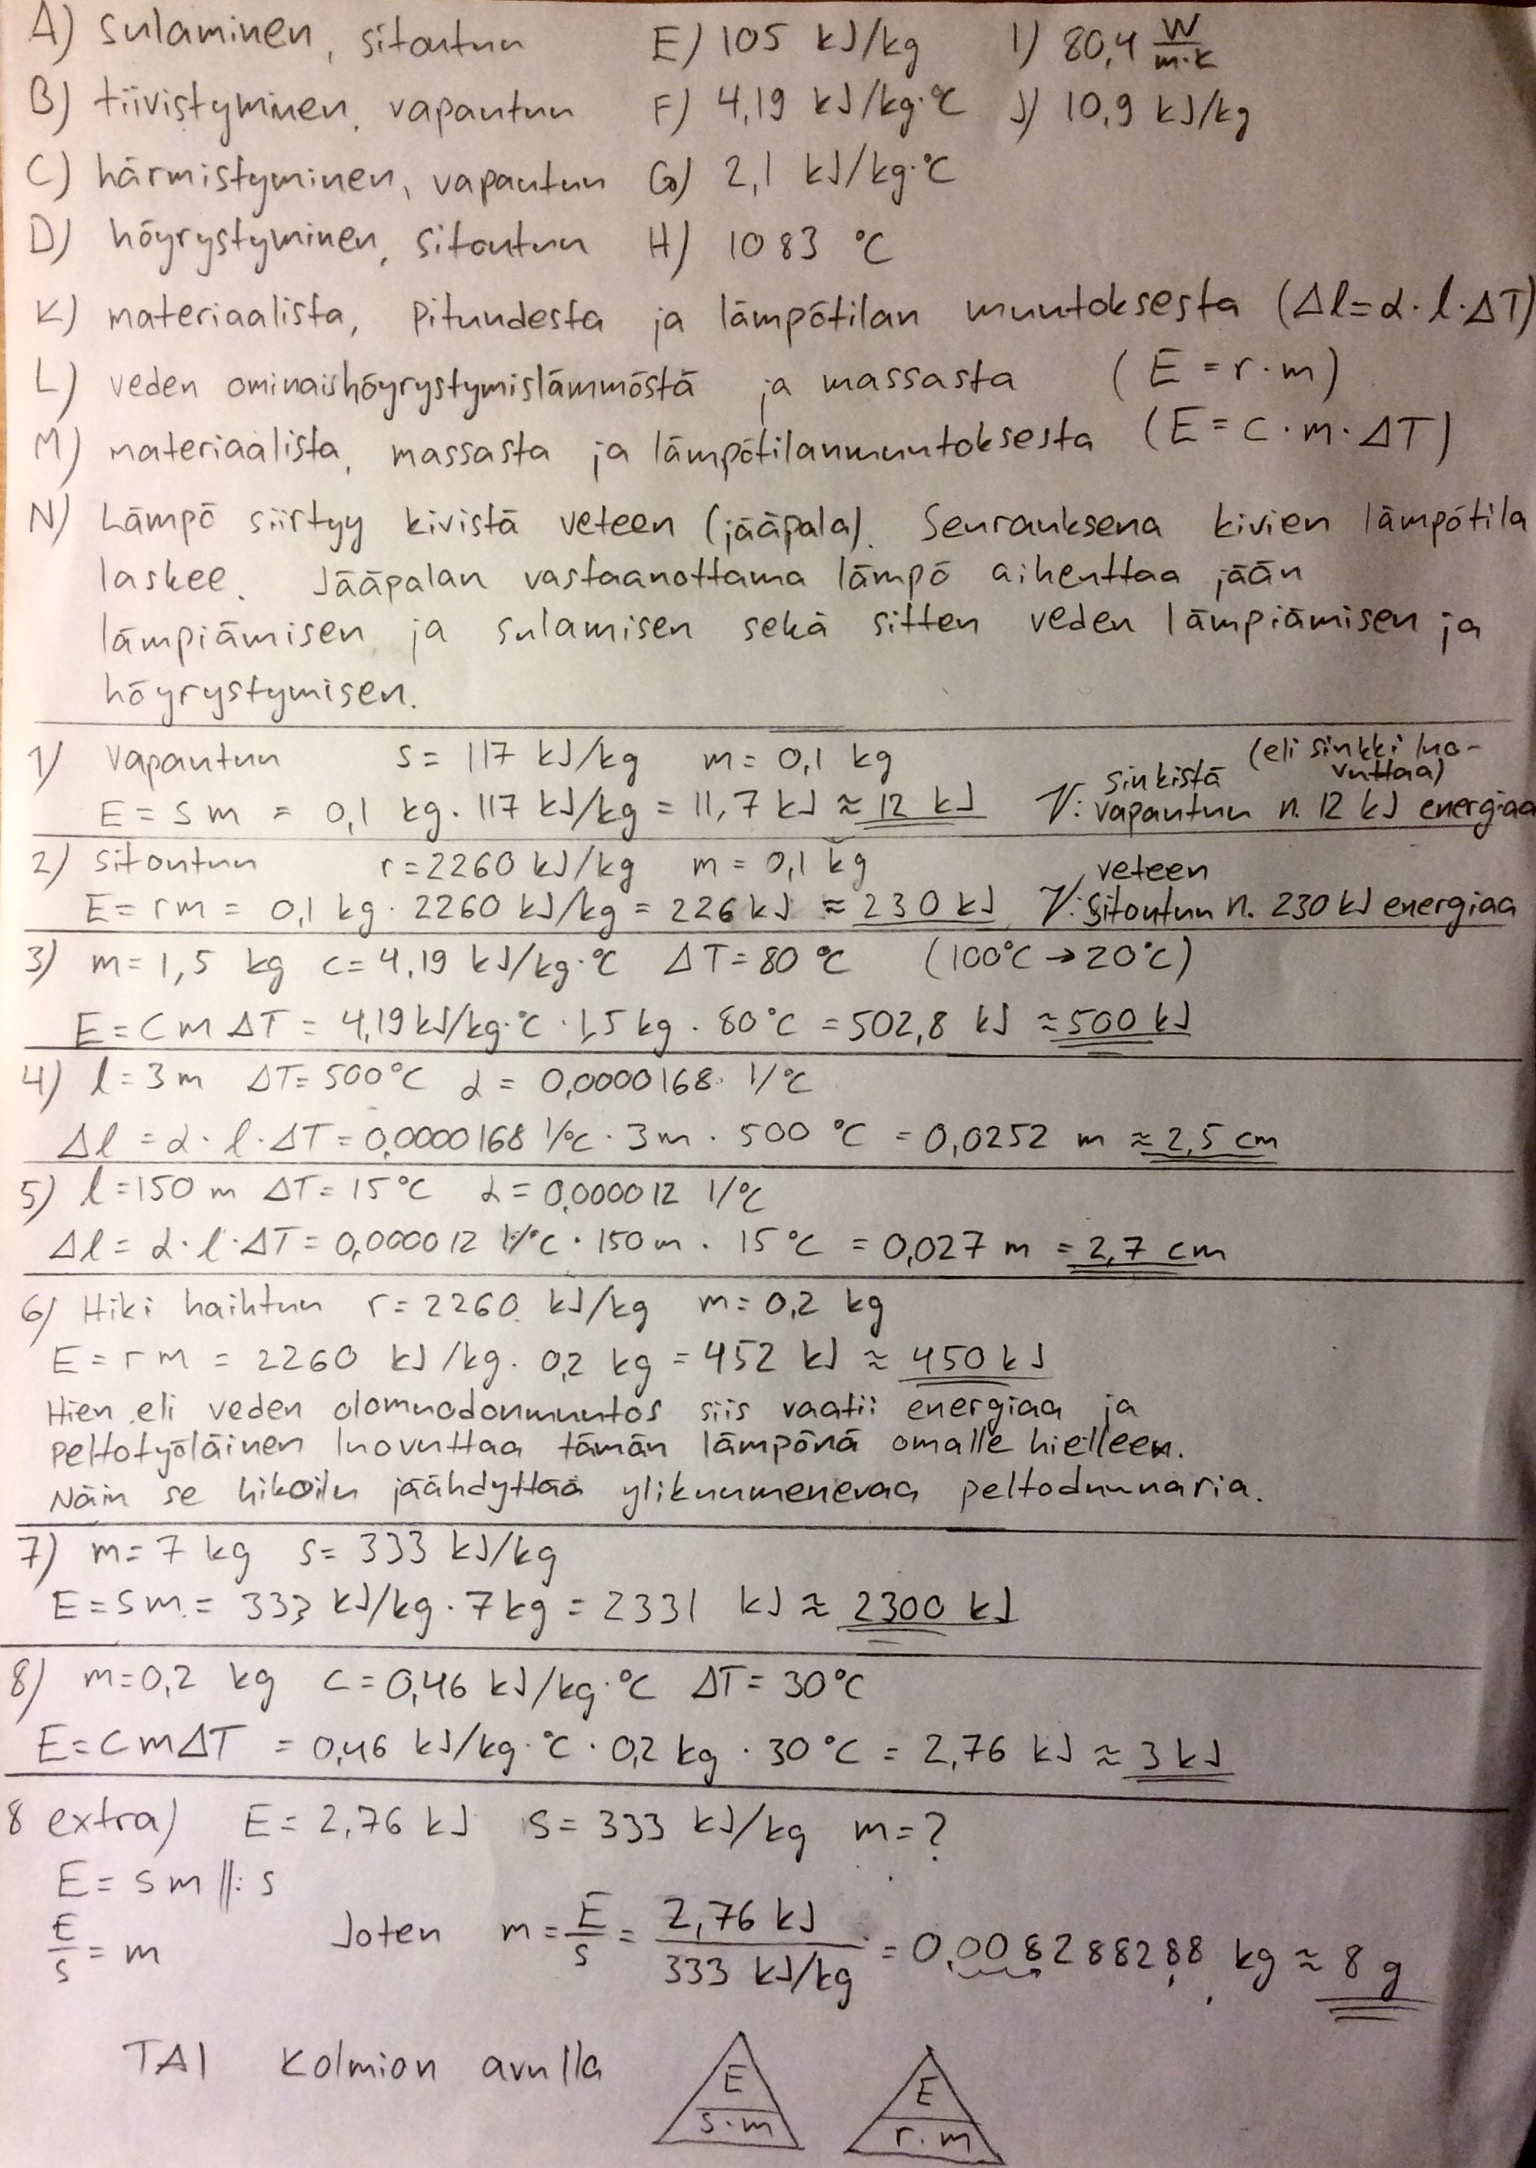 A) sulaminen, sitoutuu E) 105 kJ/kg I) 80,4 W/m·K
B) tiivistyminen, vapautuu F) 4,19 kJ/kg·°C J) 10,9 kJ/kg
C) härmistyminen, vapautuu G) 2,1 kJ/kg·°C
D) höyrystyminen, sitoutuu H) 1083 °C
K) materiaalista, pituudesta ja lämpötilan muutoksesta (Δl=α·l·ΔT)
L) veden ominaishöyrystymislämmöstä ja massasta (E=r·m)
M) materiaalista, massasta ja lämpötilanmuutoksesta (E=c·m·ΔT)
N) Lämpö siirtyy kivistä veteen (jääpala). Seurauksena kivien lämpötila
laskee. Jääpalan vastaanottama lämpö aiheuttaa jään
lämpiämisen ja sulamisen sekä sitten veden lämpiämisen ja
höyrystymisen.
1) Vapautuu s = 117 kJ/kg m = 0,1 kg
E = sm = 0,1 kg · 117 kJ/kg = 11,7 kJ ≈ 12 kJ V: sinkistä (eli sinkki luo-
vuttaa) vapautuu n. 12 kJ energiaa
2) Sitoutuu r = 2260 kJ/kg m = 0,1 kg
E = rm = 0,1 kg · 2260 kJ/kg = 226 kJ ≈ 230 kJ V: veteen sitoutuu n. 230 kJ energiaa
3) m = 1,5 kg c = 4,19 kJ/kg·°C ΔT = 80 °C (100°C → 20°C)
E = cmΔT = 4,19 kJ/kg·°C · 1,5 kg · 80°C = 502,8 kJ ≈ 500 kJ
4) l = 3 m ΔT = 500°C α = 0,0000168 1/°C
Δl = α·l·ΔT = 0,0000168 1/°C · 3 m · 500 °C = 0,0252 m ≈ 2,5 cm
5) l = 150 m ΔT = 15°C α = 0,000012 1/°C
Δl = α·l·ΔT = 0,000012 1/°C · 150 m · 15 °C = 0,027 m = 2,7 cm
6) Hiki haihtuu r = 2260 kJ/kg m = 0,2 kg
E = rm = 2260 kJ/kg · 0,2 kg = 452 kJ ≈ 450 kJ
Hien eli veden olomuodonmuutos siis vaatii energiaa ja
peltotyöläinen luovuttaa tämän lämpönä omalle hielleen.
Näin se hikoilu jäähdyttää ylikuumenevaa peltoduunaria.
7) m = 7 kg s = 333 kJ/kg
E = sm = 333 kJ/kg · 7 kg = 2331 kJ ≈ 2300 kJ
8) m = 0,2 kg c = 0,46 kJ/kg·°C ΔT = 30°C
E = cmΔT = 0,46 kJ/kg·°C · 0,2 kg · 30°C = 2,76 kJ ≈ 3 kJ
8 extra) E = 2,76 kJ s = 333 kJ/kg m = ?
E = sm ||: s
E/s = m Joten m = E/s = 2,76 kJ / 333 kJ/kg = 0,008288288 kg ≈ 8 g
TAI kolmion avulla E E
s·m r·m